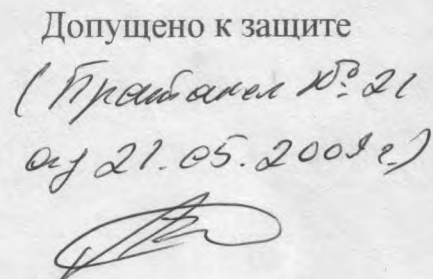 Допущено к защите
(Пратакол № 21
ад 21.05.2009 г.)